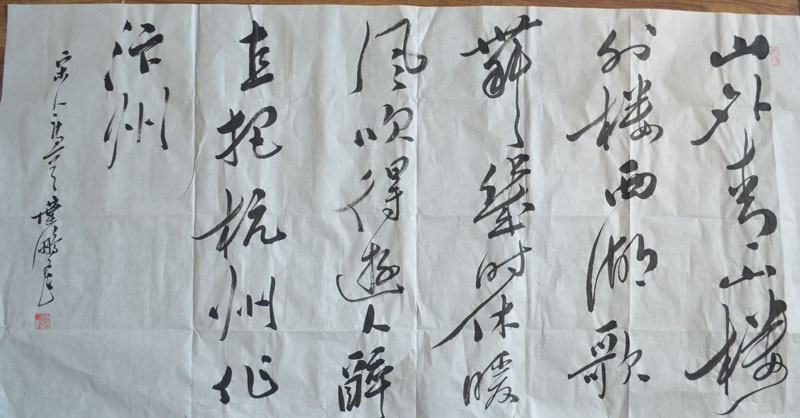 山外青山楼
外楼西湖歌
舞幾时休暖
风吹得遊人醉
直把杭州作
汴州
宋人